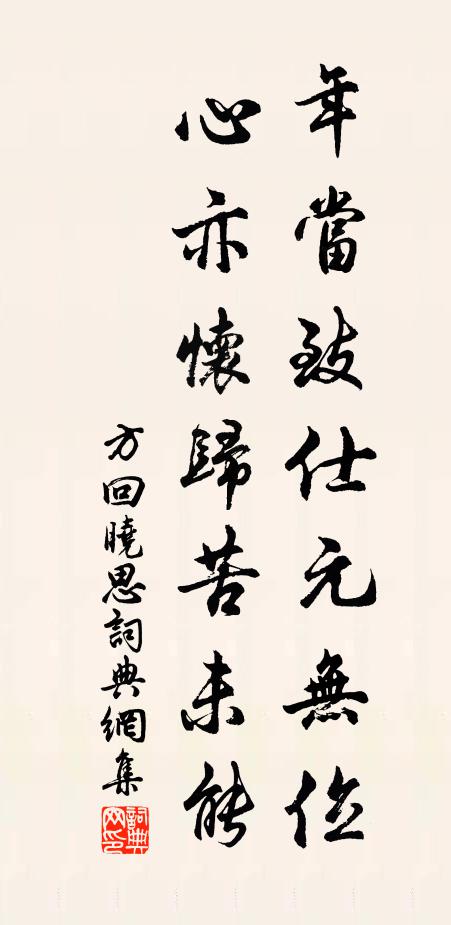 年當致仕元無位
心亦懷歸苦未能
方回曉思詞典網集
詞典
网印